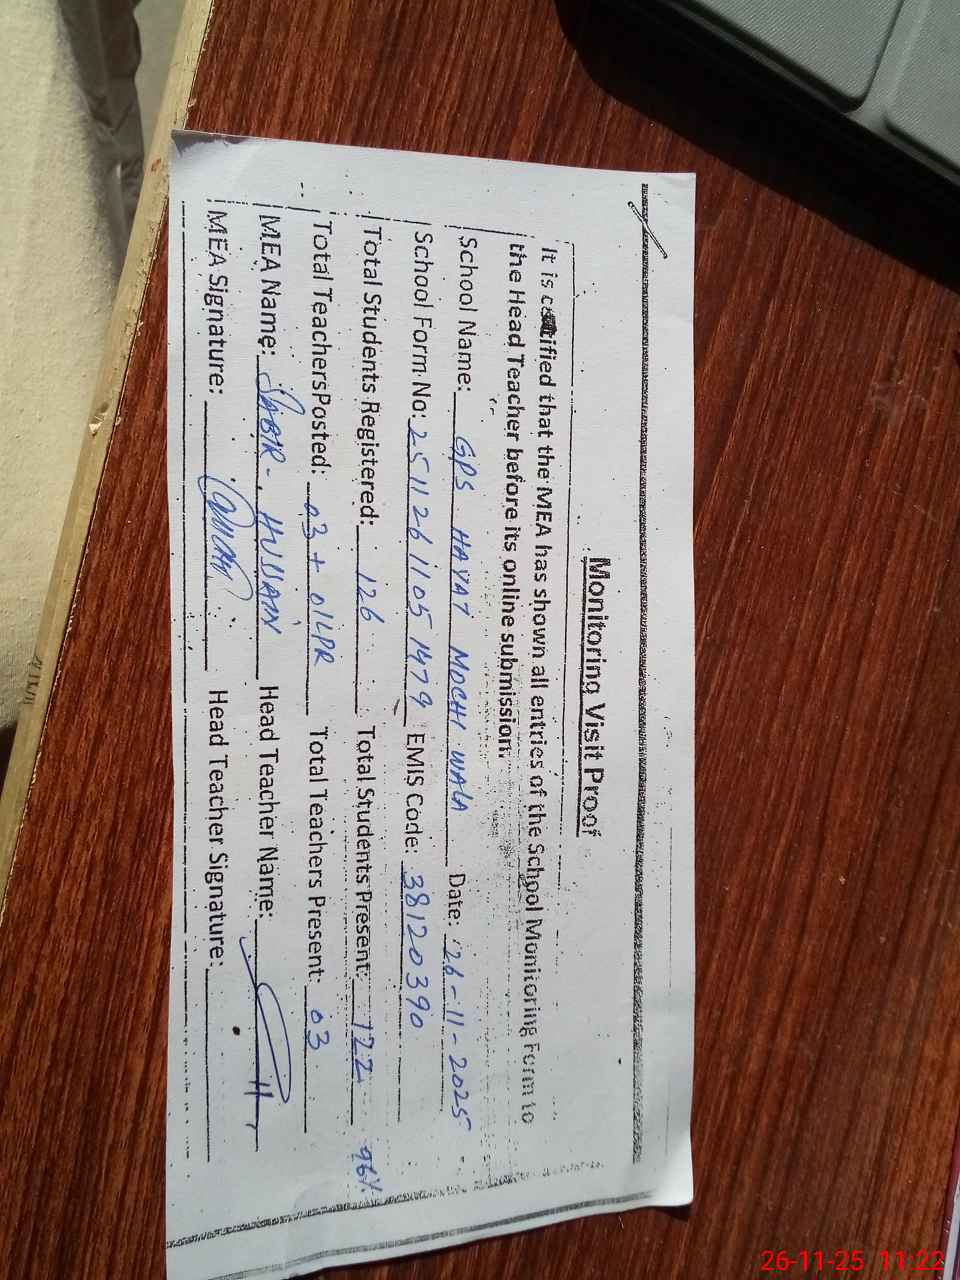 Monitoring Visit Proof
It is certified that the MEA has shown all entries of the School Monitoring Form to
the Head Teacher before its online submission.
School Name: GPS HAYAT MOCHI WALA Date: 26-11-2025
School Form No: 251126 1105 1479 EMIS Code: 38120390
Total Students Registered: 126 Total Students Present: 122 96%
Total TeachersPosted: 03 + 01LPR Total Teachers Present: 03
MEA Name: SABIR - HUSSAIN Head Teacher Name:
MEA Signature: Head Teacher Signature:
26-11-25 11:22